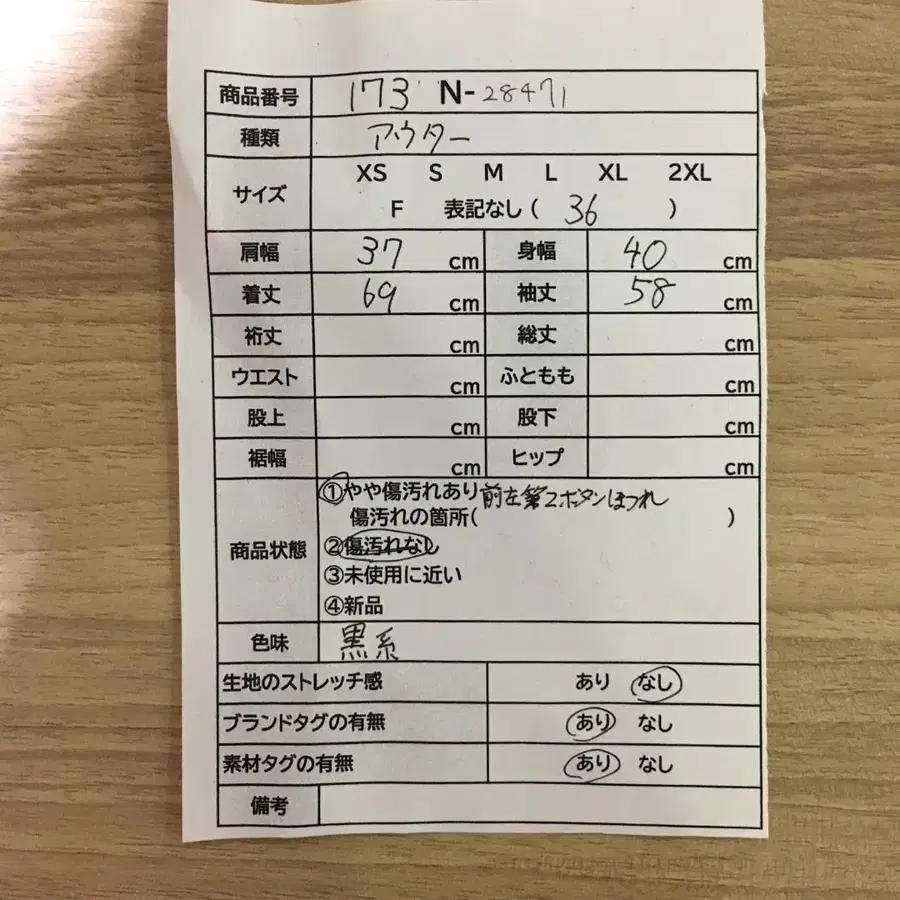 商品番号 173 N-28471
種類 アウター
サイズ XS S M L XL 2XL
F 表記なし ( 36 )
肩幅 37 cm 身幅 40 cm
着丈 69 cm 袖丈 58 cm
裄丈 cm 総丈 cm
ウエスト cm ふともも cm
股上 cm 股下 cm
裾幅 cm ヒップ cm
商品状態 ①やや傷汚れあり 前左第2ボタンほつれ
傷汚れの箇所( )
②傷汚れなし
③未使用に近い
④新品
色味 黒系
生地のストレッチ感 あり なし
ブランドタグの有無 あり なし
素材タグの有無 あり なし
備考